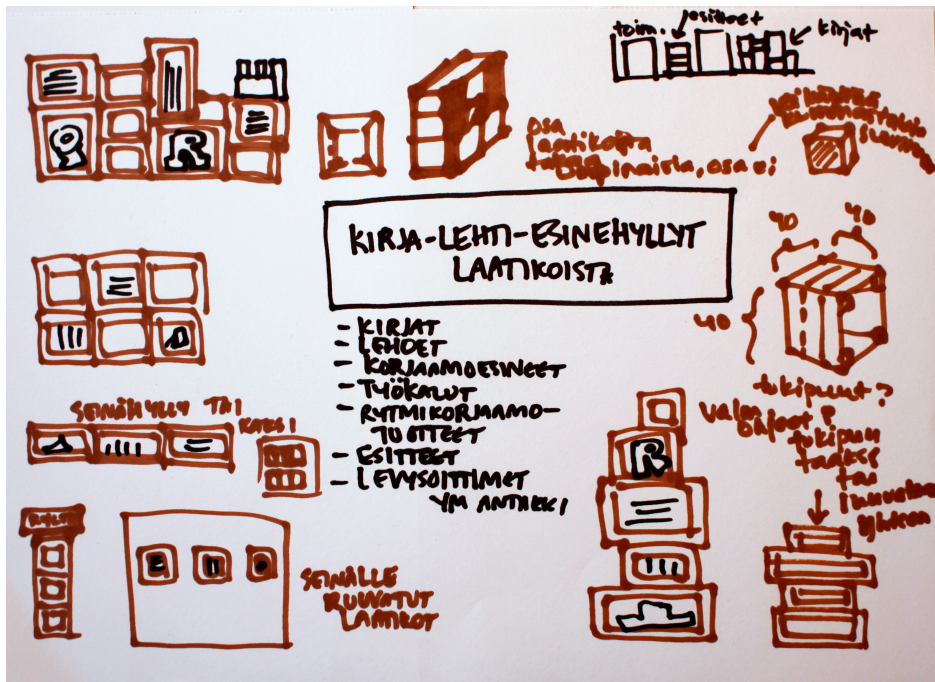 toim.
esitteet
kirjat
osa
laatikoista
umpinaista, osa ei
KIRJA-LEHTI-ESINEHYLLYT
LAATIKOISTA
- KIRJAT
- LEHDET
- KORJAAMOESINEET
- TYÖKALUT
- RYTMIKORJAAMO-
TUOTTEET
- ESITTEET
- LEVYSOITTIMET
YM ANTIIKKI
40
40
40
tukipuut?
tukipuu
taakse
tai
SEINÄHYLLY TAI
KAKSI
SEINÄLLE
RUUVATUT
LAATIKOT
R
R